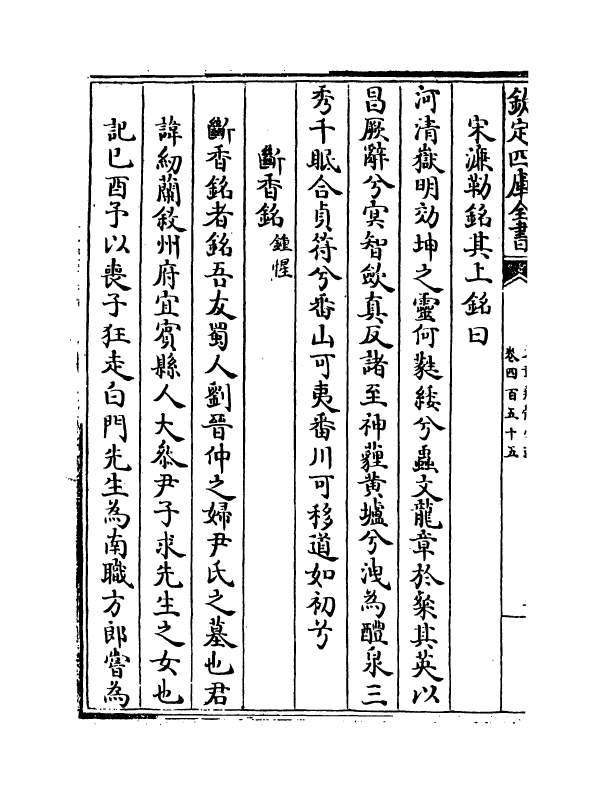 欽定四庫全書
卷四百五十五
宋濂勒銘其上銘曰
河清嶽明効坤之靈何蕤綏兮蟲文龍章於粲其英以
昌厥辭兮寘智歛真反諸至神薶黄壚兮洩為醴泉三
秀千眠合貞符兮番山可夷番川可移道如初兮
斷香銘 鍾惺
斷香銘者銘吾友蜀人劉晉仲之婦尹氏之墓也君
諱紉蘭敘州府宜賓縣人大叅尹子求先生之女也
記己酉予以喪子狂走白門先生為南職方郎嘗為